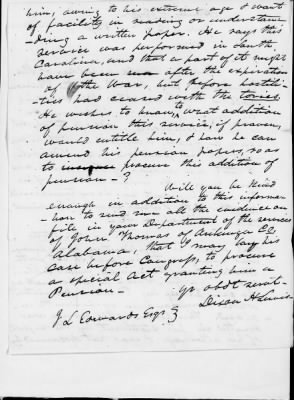 him, owing to his extreme age & want
of facility in reading or understan-
ding a written paper. He says this
service was performed in South
Carolina, and that a part of it might
have been after the expiration
of the War, but before hostili-
ties had ceased with the tories.
He wishes to know, to what addition
of pension this service, if proven,
would entitle him, & how he can
amend his pension papers, so as
to procure this addition of
pension - ?
Will you be kind
enough in addition to this informa-
tion to send me all the evidence on
file in your Department of the services
of John Thomas of Autauga Co
Alabama, that I may lay his
case before Congress, to procure
a special Act granting him a
Pension -
yr obdt servt -
Dixon H Lewis
J L Edwards Esqr